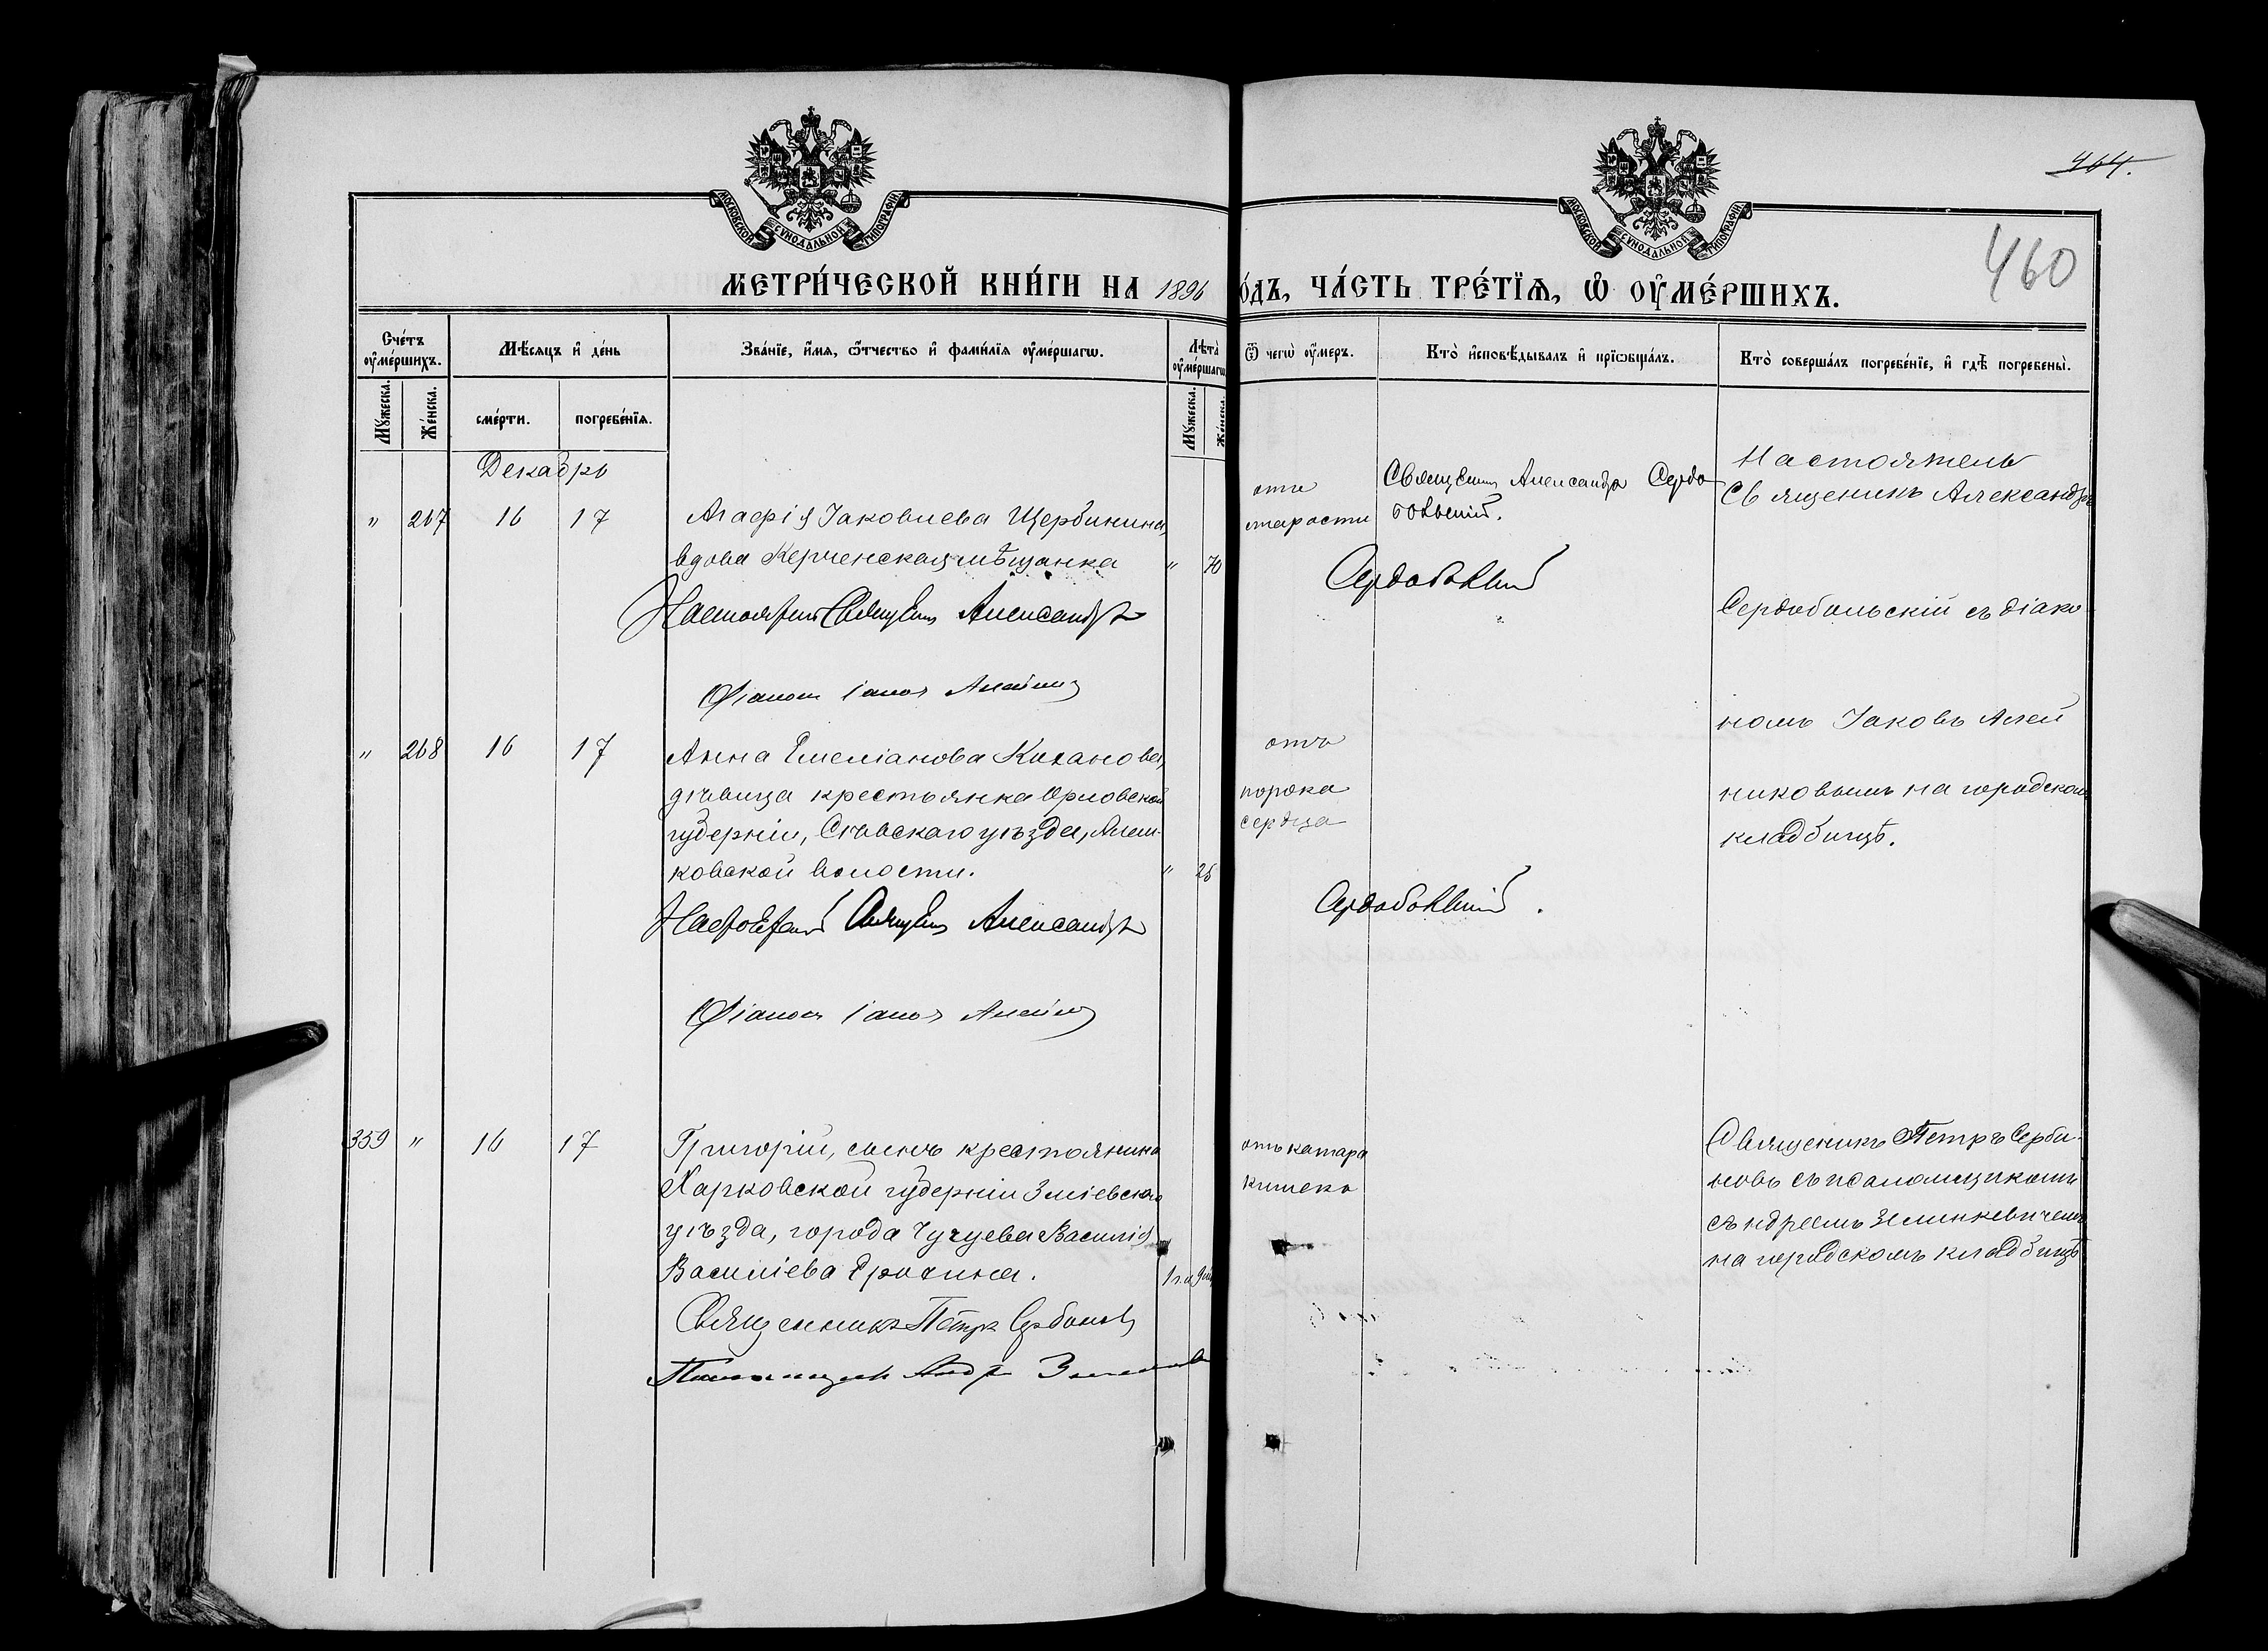 464.
460
МОСКОВСКОЙ СУНОДАЛЬНОЙ ТИПОГРАФІИ.
МОСКОВСКОЙ СУНОДАЛЬНОЙ ТИПОГРАФІИ.
МЕТРИ́ЧЕСКОЙ КНИ́ГИ НА 1896 ѻ́ДЪ, ЧА́СТЬ ТРЕ́ТЇѦ, Ѡ҆ ОУ҆МЕ́РШИХЪ.
Сче́тъ оу҆ме́ршихъ.
Мꙋ́жеска.
Же́нска.
Мѣ́сяцъ и҆ де́нь
сме́рти.
погребе́нїѧ.
Зва́нїе, и҆́мѧ, ѻ҆́тчество и҆ фами́лїѧ оу҆ме́ршагѡ.
Лѣ̀та оу҆ме́ршагѡ
Мꙋ́жеска.
Же́нска.
Ѿ чегѡ̀ оу҆́меръ.
Кто̀ и҆сповѣ́дывалъ и҆ прїѡбща́лъ.
Кто̀ соверша́лъ погребе́нїе, и҆ гдѣ̀ погребены̀.
Декабрь
" 267 16 17 Агафія Іаковлева Щербинина,
вдова Керченская мѣщанка " 70
Настоятель Священ Александръ
Діаконъ Іаковъ Алейник
отъ
старости
Священ Александръ Сердо
больскій.
Сердобольскій
Настоятель
Священикъ Александръ
Сердобольскій съ діако
номъ Іаковъ Алей
никовымъ на городском
кладбищѣ.
" 268 16 17 Анна Емеліанова Каханова,
дѣвица крестьянка Орловской
губерніи, Сѣвскаго уѣзда, Алеш-
ковской волости. " 26
Настоятель Священ Александръ
Діаконъ Іаковъ Алейник
отъ
порока
сердца
Сердобольскій.
359 " 16 17 Григорій, сынъ крестьянина
Харковской губерніи Зміевскаго
уѣзда, города Чугуева Василія
Василіева Ерохина. 1 г. и 9 м
Священникъ Петръ Сербинов
Псаломщик Андр
отъ катара
кишекъ
Священикъ Петръ Серби-
новъ съ псаломщикомъ
Андреемъ Зелинкевичемъ
на городскомъ кладбищѣ